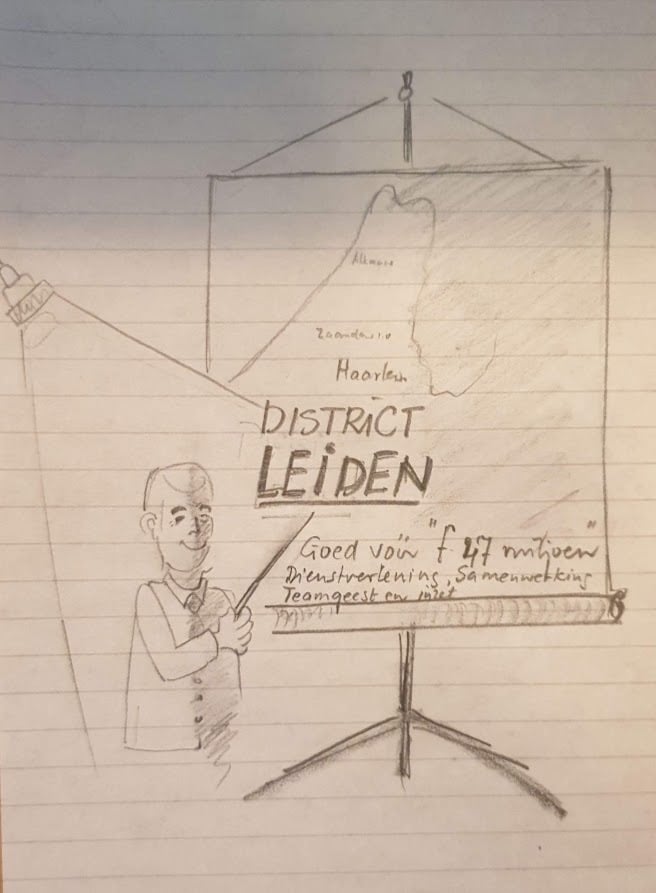 Alkmaar
Zaandam
Haarlem
DISTRICT
LEIDEN
Goed voor "f 47 miljoen"
Dienstverlening, Samenwerking
Teamgeest en inzet